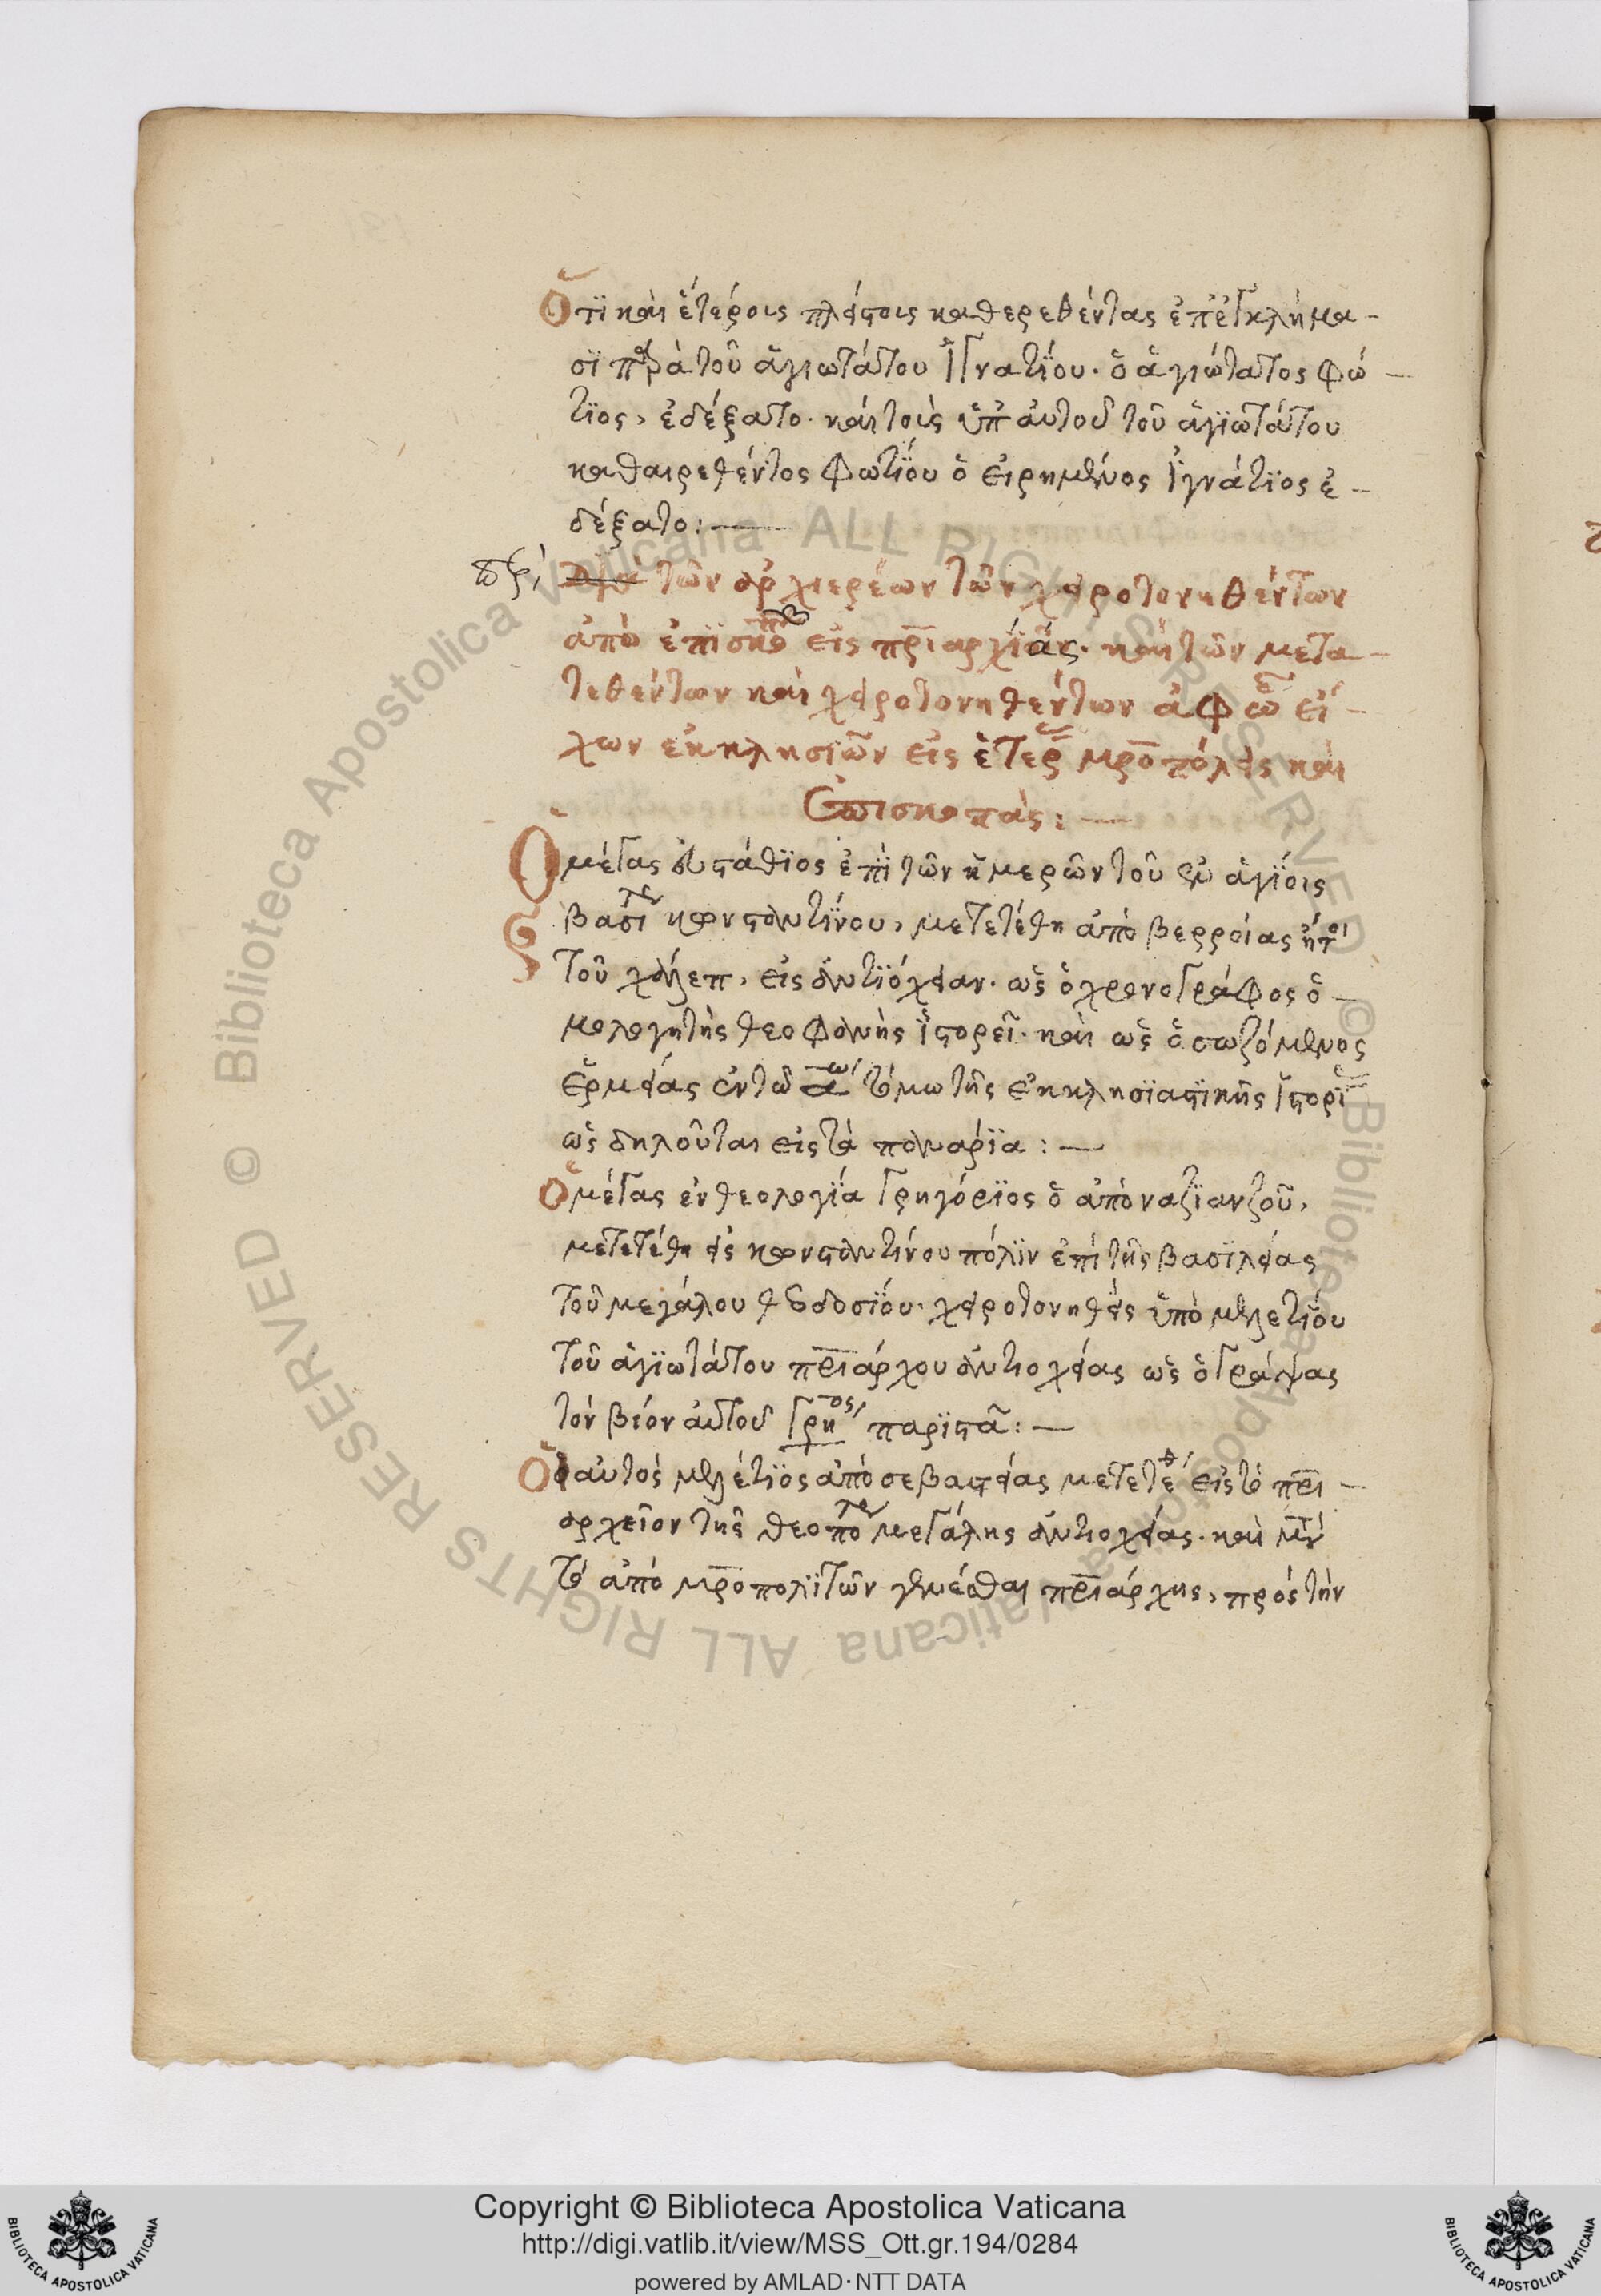 Ὅτϊ καὶ ἑτέροις πλείστοις καθερεθέντας ἐπ' ἐγκλήμα-
σϊ παρὰ τοῦ ἁγιωτάτου Ἰγνατΐου· ὁ ἁγιώτατος Φώ-
τϊος, ἐδέξατο· καὶ τοὺς ὑπ' αὐτοῦ τοῦ ἁγϊωτάτου
καθαιρεθέντος Φωτΐου ὁ εἰρημένος Ἰγνάτϊος ἐ-
δέξατο:—
περὶ τῶν ἀρχιερέων τῶν χειροτονηθέντων
ἀπὸ ἐπϊσκό εἰς πρϊαρχΐας· καὶ τῶν μετα-
τεθέντων καὶ χειροτονηθέντων ἀφ' ὧν εἶ-
χων ἐκκλησιῶν εἰς ἑτέρ μροπόλεις καὶ
Ἐπισκοπάς:—
Ὁ μέγας Εὐστάθϊος ἐπῒ τῶν ἡμερῶν τοῦ ἐν ἁγΐοις
βασϊ κωνσταντΐνου, μετετέθη ἀπὸ βερροίας ἤτοι
τοῦ χάλεπ, εἰς ἀντϊόχειαν· ὡς ὁ χρονογράφος ὁ-
μολογητὴς θεοφάνης ἱστορεῖ· καὶ ὡς ὁ σωζόμενος
Ἑρμείας ἐν τῶ α τόμω τῆς ἐκκλησϊαστϊκῆς ἱστορϊ
ὡς δηλοῦται εἰς τὰ πανάρϊα:—
Ὁ μέγας ἐν θεολογΐα Γρηγόρϊος ὁ ἀπὸ ναζϊανζοῦ,
μετετέθη εἰς κωνσταντίνου πόλϊν ἐπὶ τῆς βασϊλείας
τοῦ μεγάλου θεοδοσΐου· χειροτονηθεὶς ὑπὸ μελετΐου
τοῦ ἁγϊωτάτου πριάρχου ἀντιοχείας ὡς ὁ γράψας
τὸν βίον αὐτοῦ Γρηος παρϊστᾶ:—
Ὁ αὐτὸς μελέτϊος ἀπὸ σεβαστείας μετετέθ εἰς τὸ πρι-
αρχεῖον τῆς θεοπό μεγάλης ἀντιοχείας· καὶ
τὸ ἀπὸ μροπολϊτῶν γενέσθαι πριάρχης, πρὸς τὴν
Copyright © Biblioteca Apostolica Vaticana
http://digi.vatlib.it/view/MSS_Ott.gr.194/0284
powered by AMLAD·NTT DATA